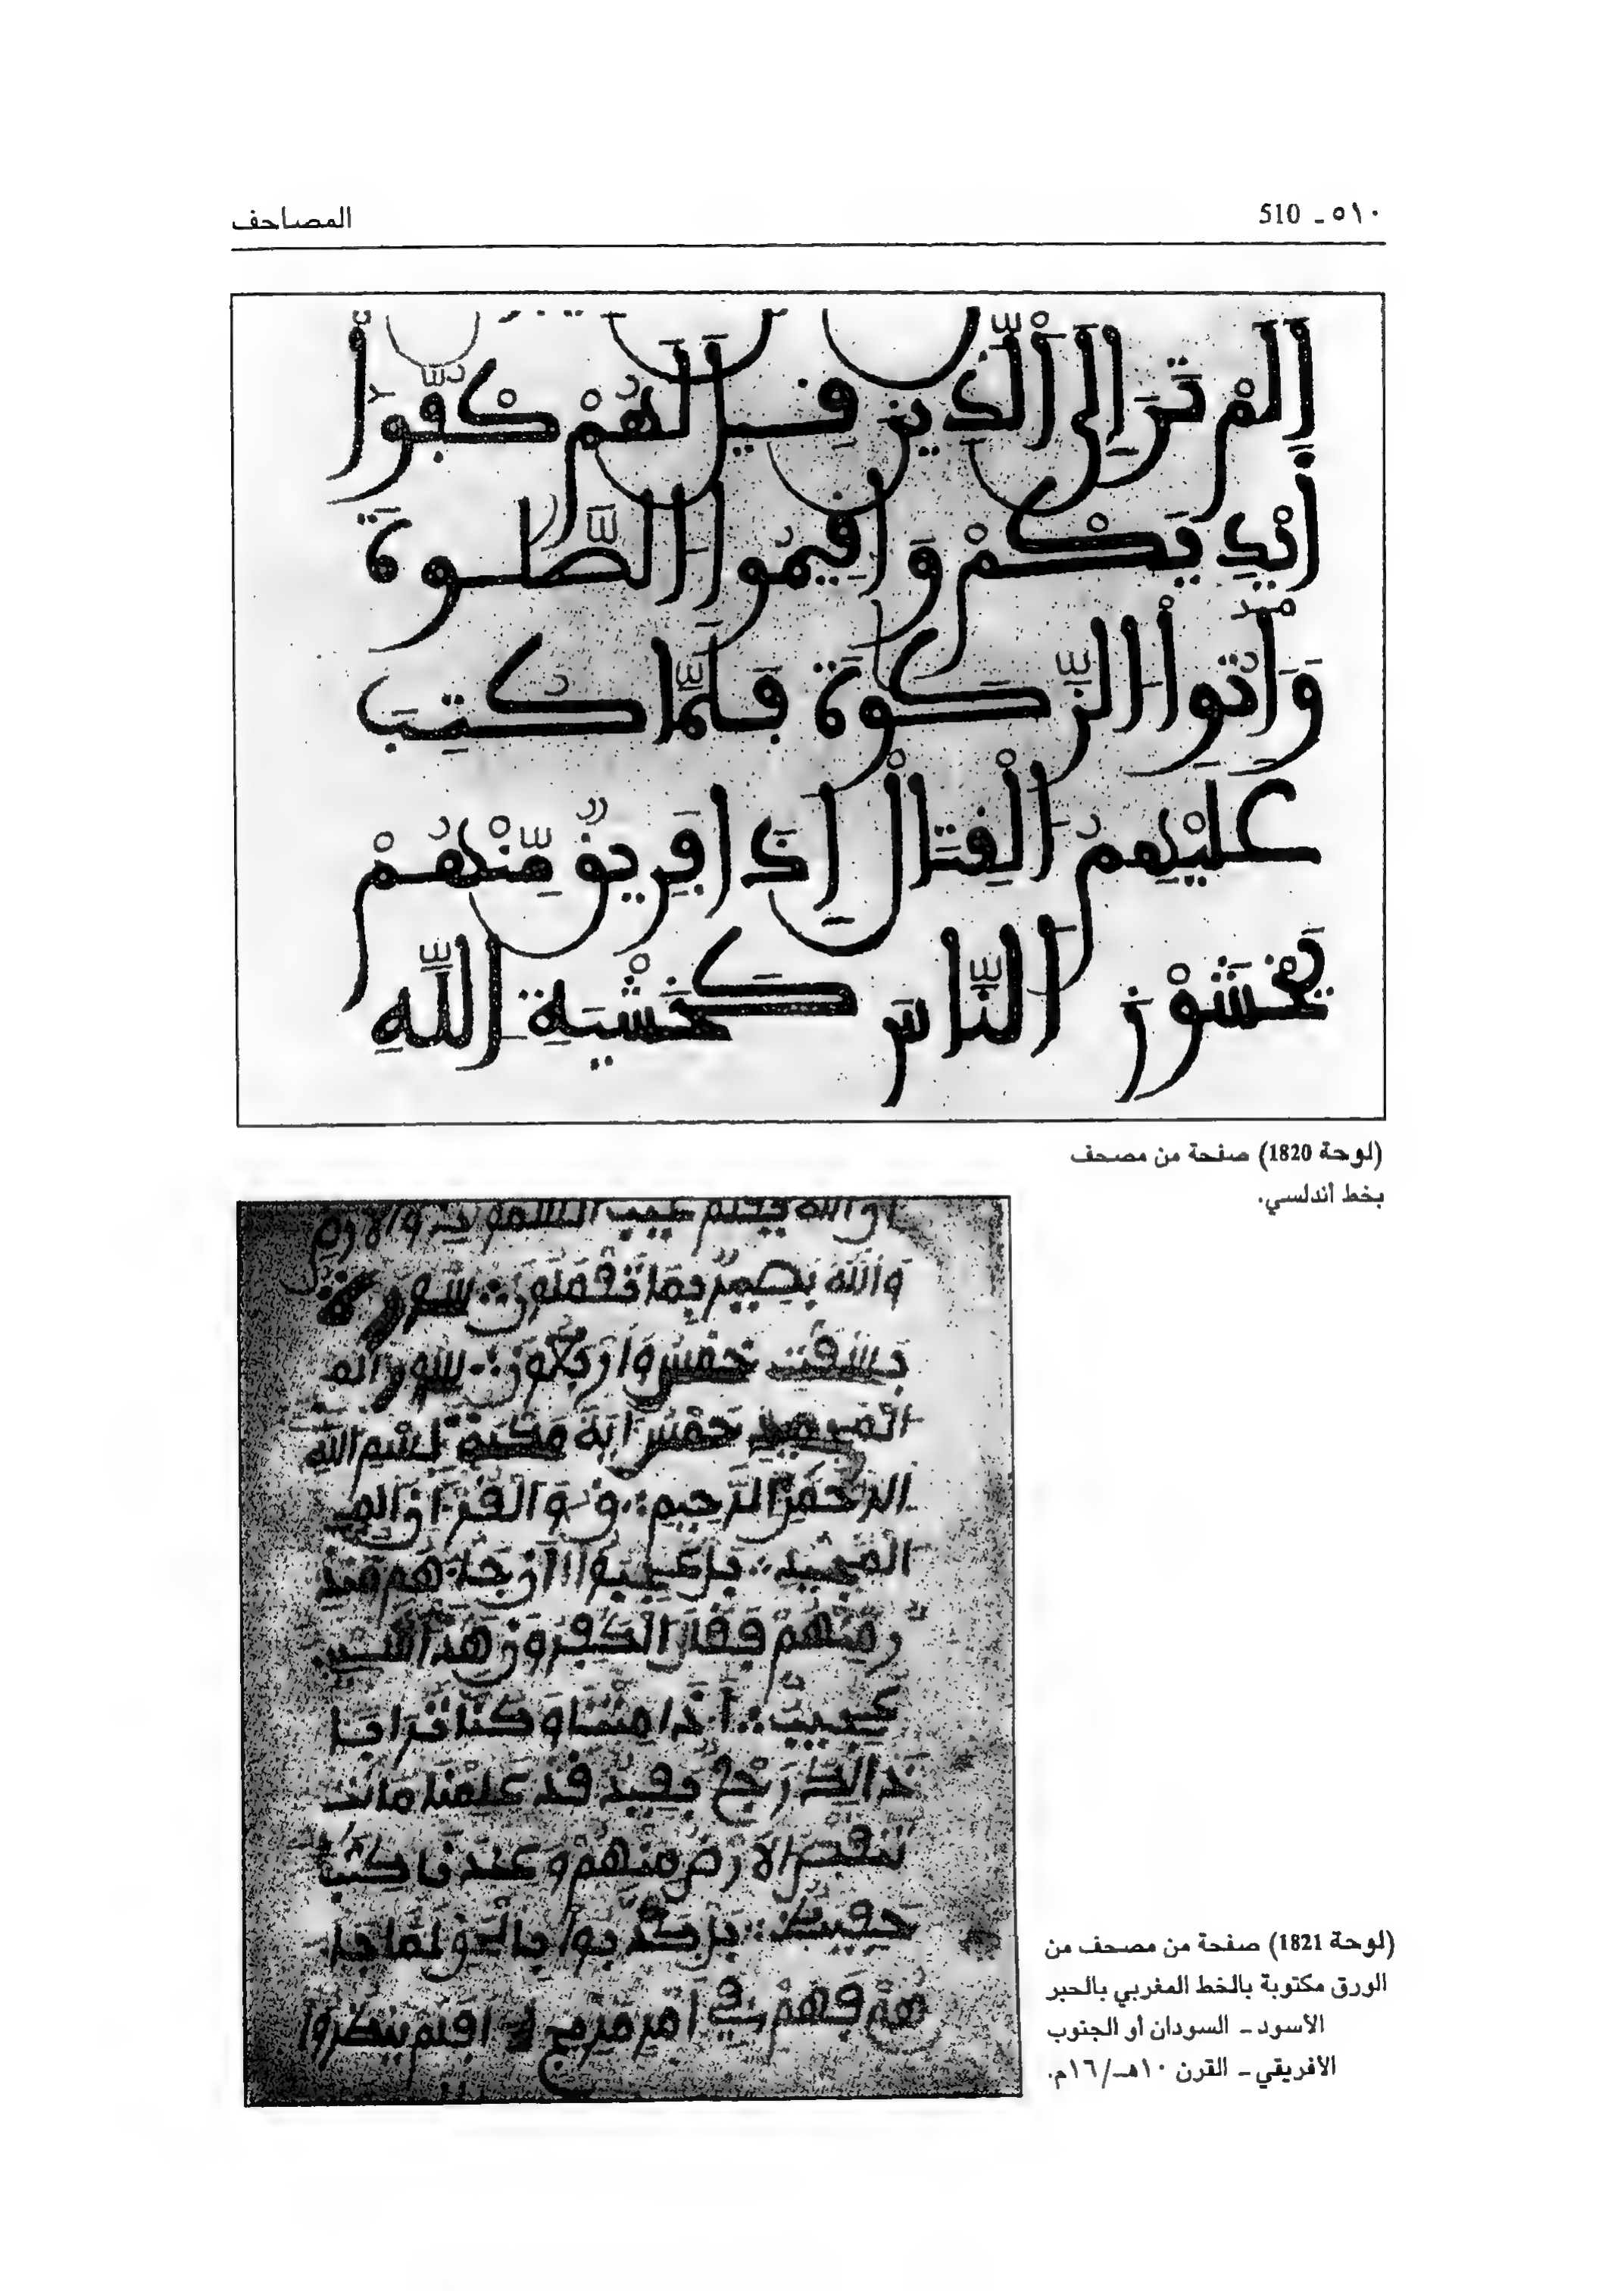 ٥١٠ - 510
المصاحف
أَلَمْ تَرَ إِلَى ٱلَّذِينَ قِيلَ لَهُمْ كُفُّوٓا
أَيْدِيَكُمْ وَأَقِيمُوا ٱلصَّلَوٰةَ
وَءَاتُوا ٱلزَّكَوٰةَ فَلَمَّا كُتِبَ
عَلَيْهِمُ ٱلْقِتَالُ إِذَا فَرِيقٌ مِّنْهُمْ
يَخْشَوْنَ ٱلنَّاسَ كَخَشْيَةِ ٱللَّهِ
(لوحة 1820) صفحة من مصحف
بخط أندلسي.
ان الله يعلم غيب السموت والارض
والله بصير بما تعملون سورة
بسقت خمس واربعون سور الم
المجيد خمس اية مكية بسم الله
الرحمن الرحيم ق والقران الم
المجيد بل عجبوا ان جاءهم منذ
ر منهم فقال الكفرون هذا شي
عجيب اءذا متنا وكنا ترابا
ذالك رجع بعيد قد علمنا ما تنـ
تنقص الارض منهم وعندنا كتب
حفيظ بل كذبوا بالحق لما جا
هم فهم في امر مريج افلم ينظروا
(لوحة 1821) صفحة من مصحف من
الورق مكتوبة بالخط المغربي بالحبر
الأسود - السودان أو الجنوب
الأفريقي - القرن ١٠هـ/١٦م.